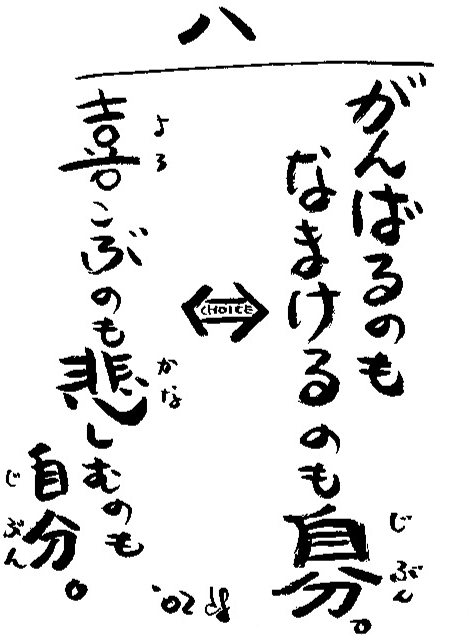 八
がんばるのも
なまけるのも自分。
じぶん
CHOICE
喜こぶのも
よろ
悲しむのも
かな
自分。
じぶん
'02